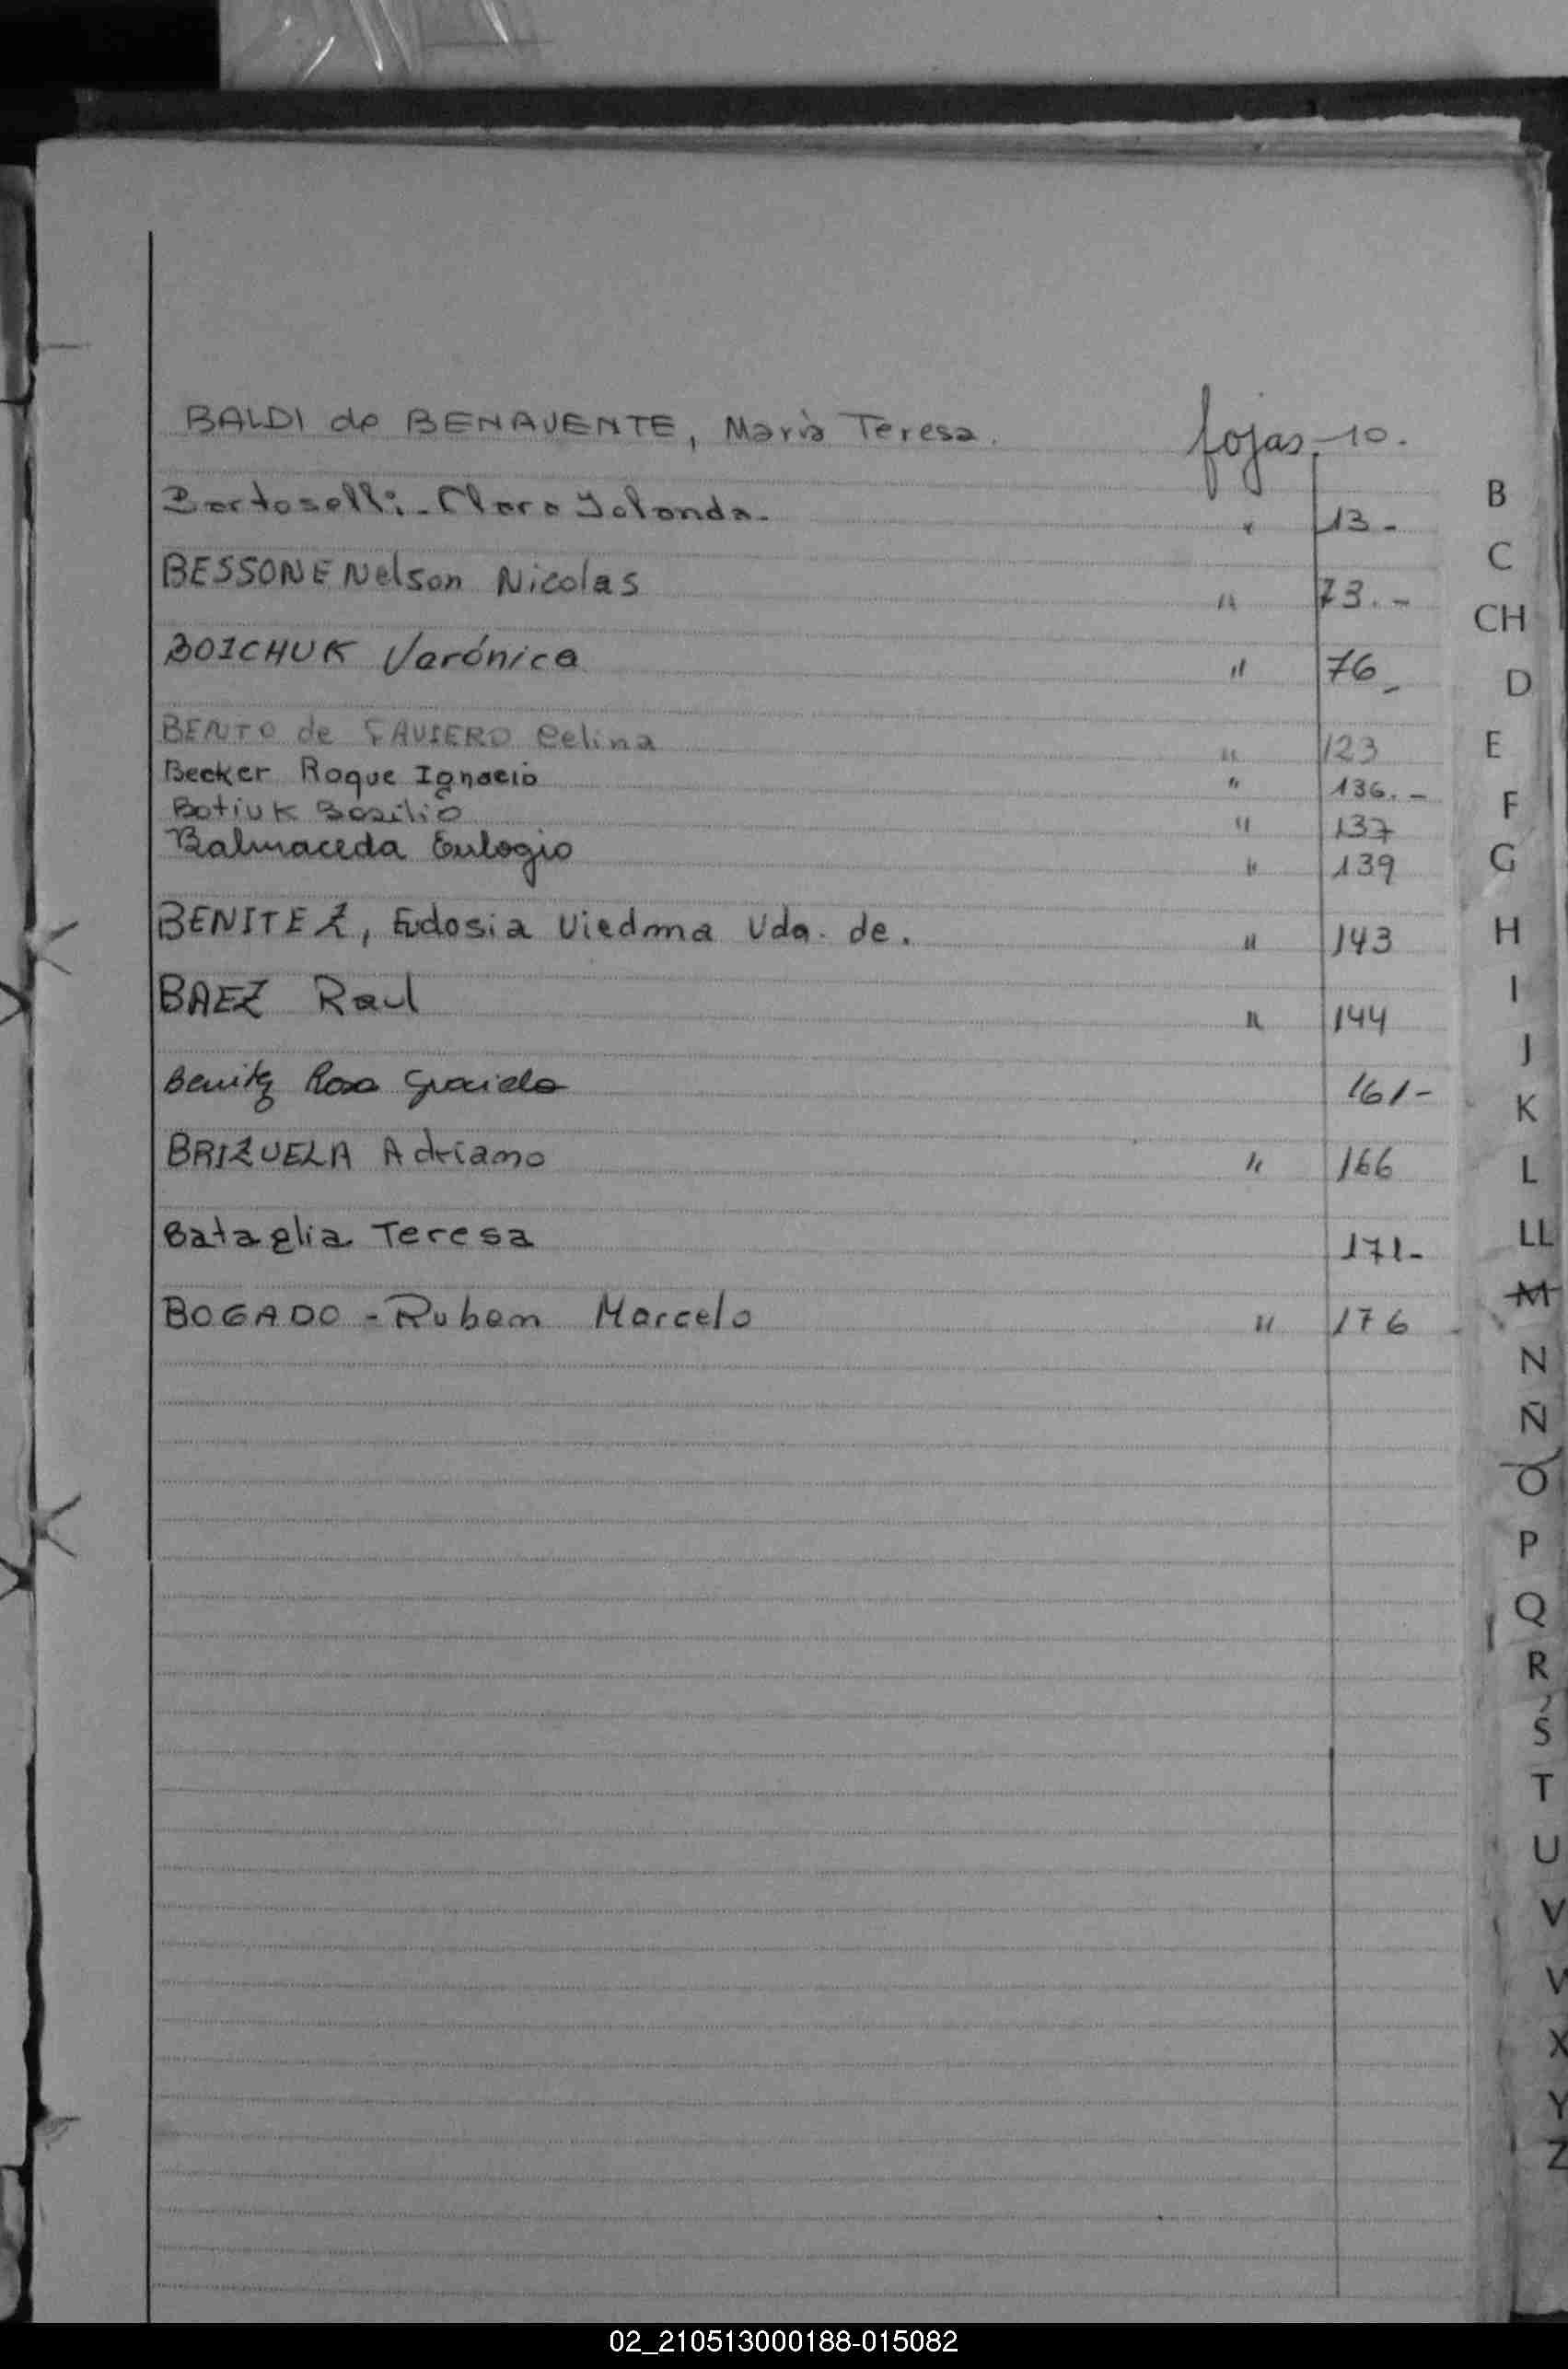 BALDI de BENAVENTE, María Teresa. fojas - 10.
Bortoselli - Clara Iolanda - " 13 -
BESSONE Nelson Nicolas " 73. -
BOICHUK Verónica " 76 -
BENTO de FAVIERO Celina " 123
Becker Roque Ignacio " 136. -
Botiuk Basilio " 137
Balmaceda Eulogio " 139
BENITEZ, Eudosia Viedma Vda. de. " 143
BAEZ Raul " 144
Benitez Rosa Graciela 161 -
BRIZUELA Adriano " 166
Bataglia Teresa 171 -
BOGADO - Ruben Marcelo " 176
B
C
CH
D
E
F
G
H
I
J
K
L
LL
M
N
Ñ
O
P
Q
R
S
T
U
V
X
Y
Z
02_210513000188-015082